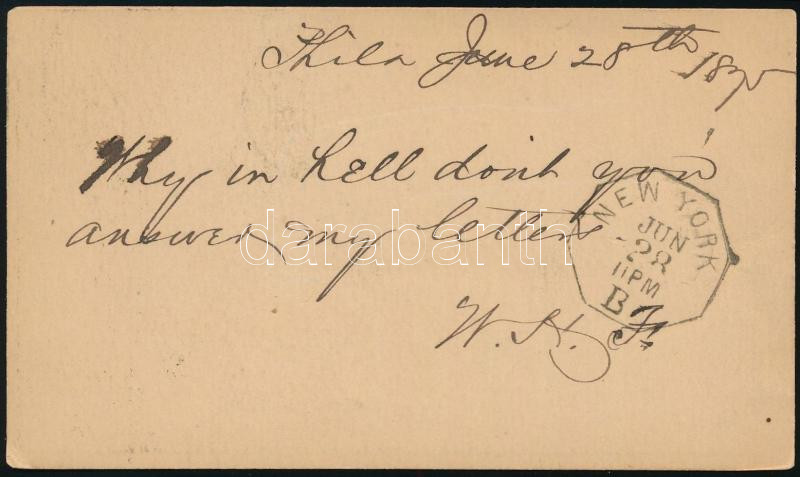 Phila June 28th 1875
Why in hell don't you
answer my letters
W. H. F.
NEW YORK
JUN
28
11PM
B
darabanth